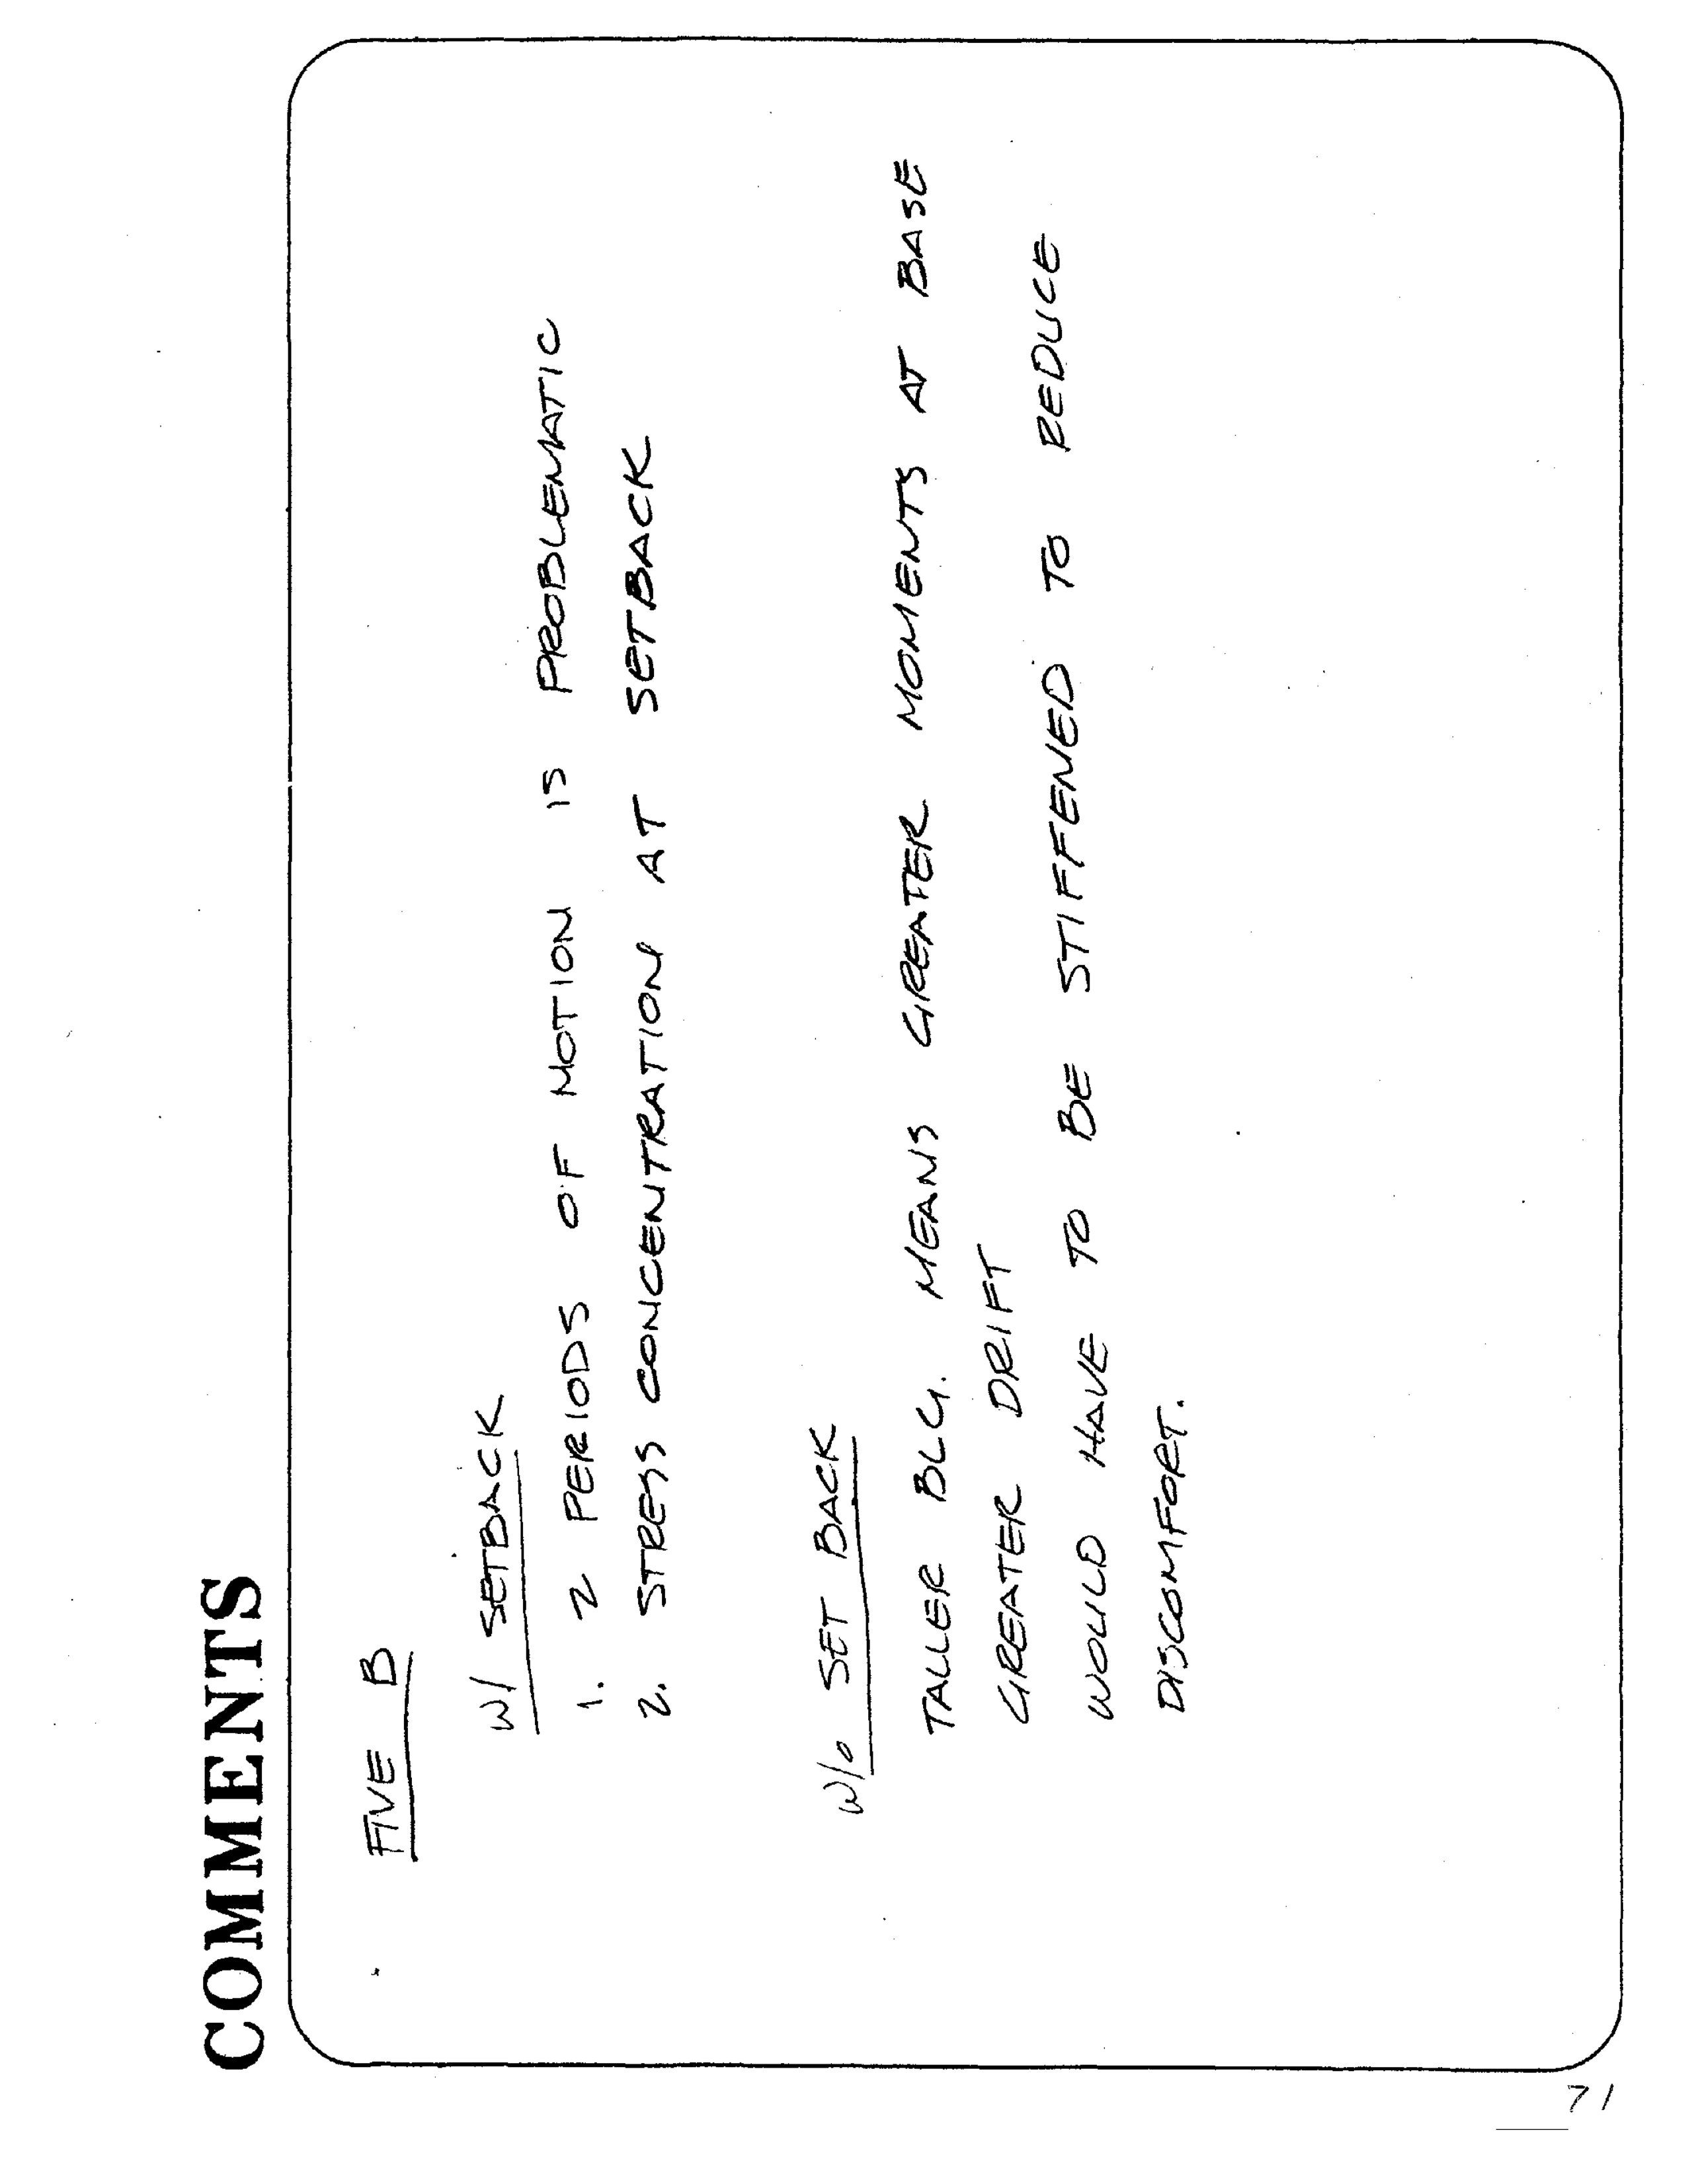 COMMENTS
FIVE B
W/ SETBACK
1. 2 PERIODS OF MOTION IS PROBLEMATIC
2. STRESS CONCENTRATION AT SETBACK
W/o SET BACK
TALLER BLG. MEANS GREATER MOMENTS AT BASE
GREATER DRIFT
WOULD HAVE TO BE STIFFENED TO REDUCE
DISCOMFORT.
71